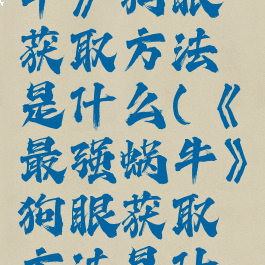 牛》狗眼
获取方法
是什么(《
最强蜗牛》
狗眼获取
方法是什